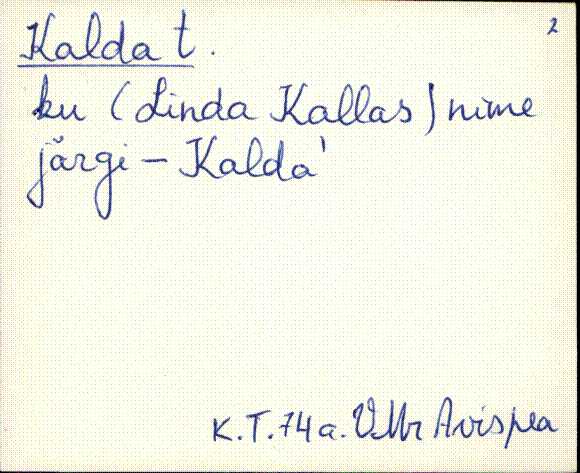 2
Kalda t.
ku (Linda Kallas) nime
järgi – Kalda'
K.T. 74 a. VMr Avispea